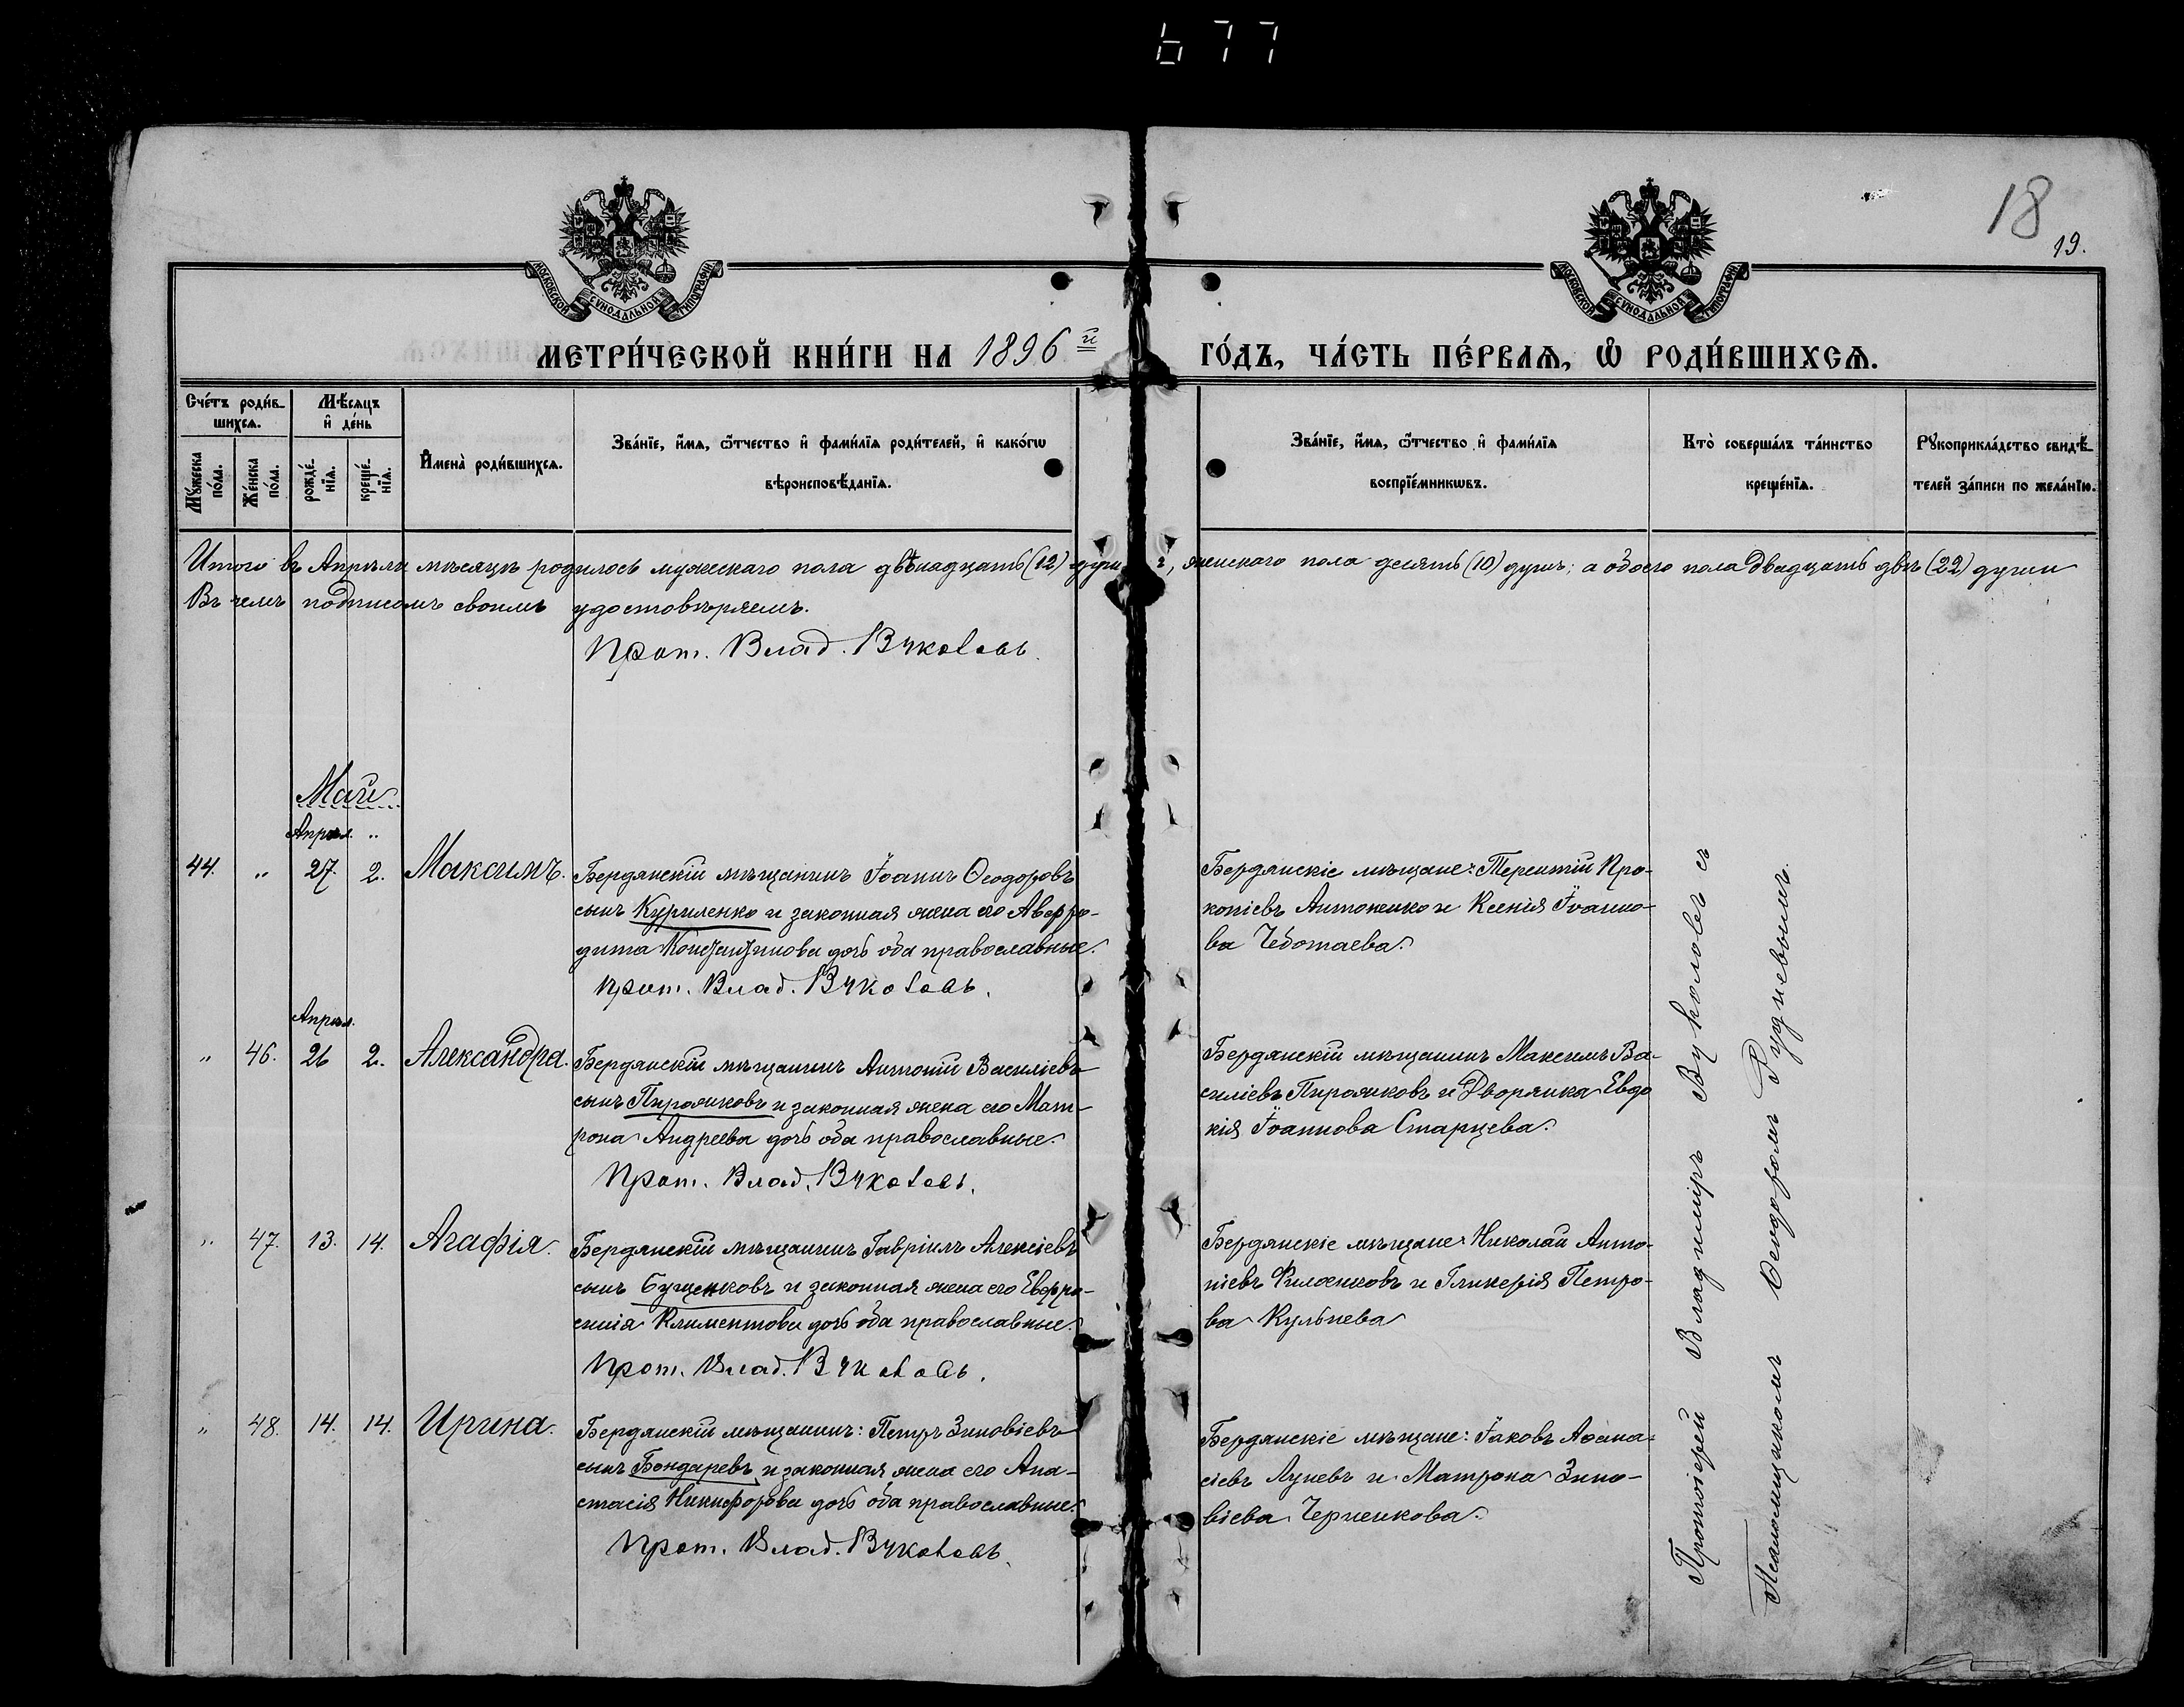 677
18
19.
МОСКОВСКОЙ СѴНОДАЛЬНОЙ ТИПОГРАФІИ
МОСКОВСКОЙ СѴНОДАЛЬНОЙ ТИПОГРАФІИ
МЕТРИ́ЧЕСКОЙ КНИ́ГИ НА 1896й ГО́ДЪ, ЧА́СТЬ ПЕ́РВАѦ, Ѽ РОДИ́ВШИХСѦ.
Сче́тъ роди́в-
шихсѧ.
Мꙋ́жеска по́ла.
Же́нска по́ла.
Мѣ́сяцъ
и҆ де́нь
рожде́-
нїѧ.
креще́-
нїѧ.
И҆мена̀ роди́вшихсѧ.
Зва́нїе, и҆́мѧ, ѻ҆́тчество и҆ фами́лїѧ роди́телей, и҆ како́гѡ
вѣроисповѣ́данїѧ.
Зва́нїе, и҆́мѧ, ѻ҆́тчество и҆ фами́лїѧ
воспрїе́мникѡвъ.
Кто̀ соверша́лъ та́инство
креще́нїѧ.
Рꙋкоприкла́дство свидѣ́-
телей за́писи по жела́нїю.
Итого въ Апрѣлѣ мѣсяцѣ родилось мужескаго пола двѣнадцать (12) душъ, женскаго пола десять (10) душъ; а обоего пола двадцать двѣ (22) души
Въ чемъ подписомъ своимъ удостовѣряемъ.
Прот. Влад. Вуколовъ.
Май
Апрѣл. „
44. „ 27. 2. Максимъ.
Бердянскій мѣщанинъ Іоаннъ Ѳеодоровъ
сынъ Куриленко и законная жена его Афро-
дита Константинова дочь оба православные.
Прот. Влад. Вуколовъ.
Бердянскіе мѣщане: Терентій Про-
копіевъ Антоненко и Ксенія Іоанно-
ва Чеботаева.
Апрѣл.
„ 46. 26 2. Александра.
Бердянскій мѣщанинъ Антоній Василіевъ
сынъ Пирожковъ и законная жена его Мат-
рона Андреева дочь оба православные.
Прот. Влад. Вуколовъ.
Бердянскій мѣщанинъ Максимъ Ва-
силіевъ Пирожковъ и Дворянка Евдо
кія Іоаннова Старцева.
„ 47. 13. 14. Агафія.
Бердянскій мѣщанинъ Гавріилъ Алексіевъ
сынъ Бущенковъ и законная жена его Евфро-
синія Климентова дочь оба православные.
Прот. Влад. Вуколовъ.
Бердянскіе мѣщане: Николай Анто-
ніевъ и Гликерія Петро-
ва Кульнева
„ 48. 14. 14. Ирина.
Бердянскій мѣщанинъ: Петръ Зиновіевъ
сынъ Бондаревъ и законная жена его Ана-
стасія Никифорова дочь оба православные.
Прот. Влад. Вуколовъ.
Бердянскіе мѣщане: Іаковъ Аѳана-
сіевъ Луневъ и Матрона Зино-
віева Черненкова.
Протоіерей Владиміръ Вуколовъ съ
Псаломщикомъ Ѳеодоромъ Рудневымъ.